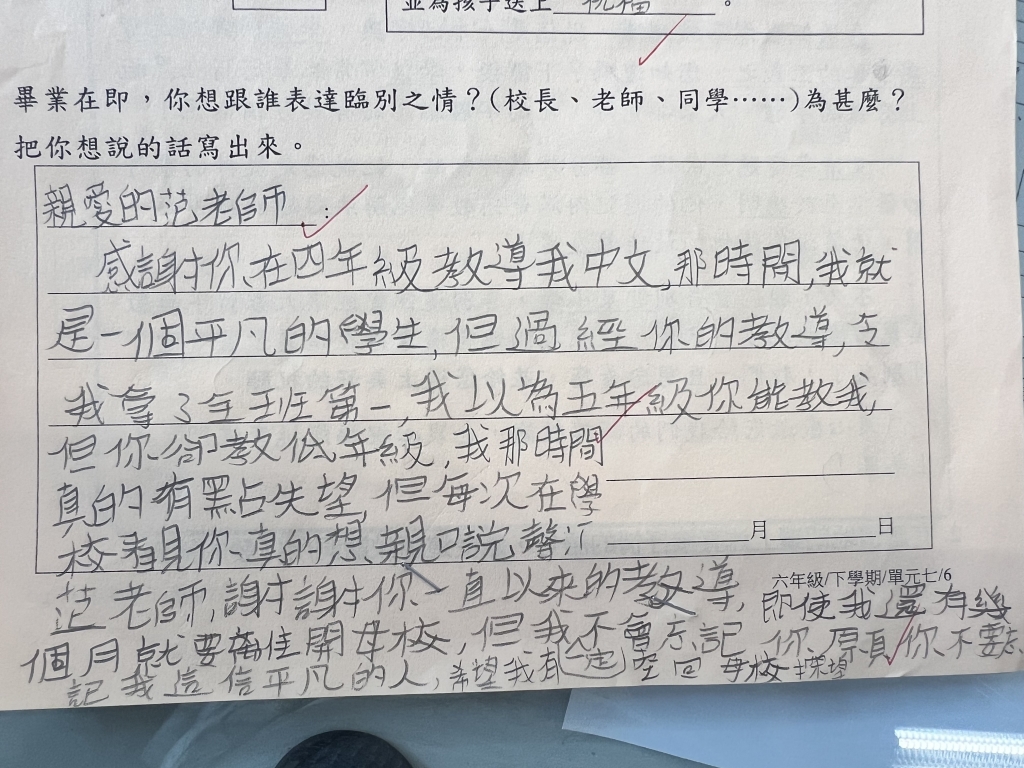 並為孩子送上 祝福 。
畢業在即，你想跟誰表達臨別之情？(校長、老師、同學⋯⋯)為甚麼？
把你想說的話寫出來。
親愛的范老師：
感謝你在四年級教導我中文,那時間,我就
是一個平凡的學生,但過經你的教導,令
我拿了全班第一,我以為五年級你能教我,
但你卻教低年級,我那時間
真的有點失望,但每次在學
校看見你真的想親口說聲
月 日
六年級/下學期/單元七/6
范老師,謝謝你一直以來的教導,即使我還有幾
個月就要離開母校,但我不會忘記你,你不要忘
記我這個平凡的人,希望我有一定空回母校探望